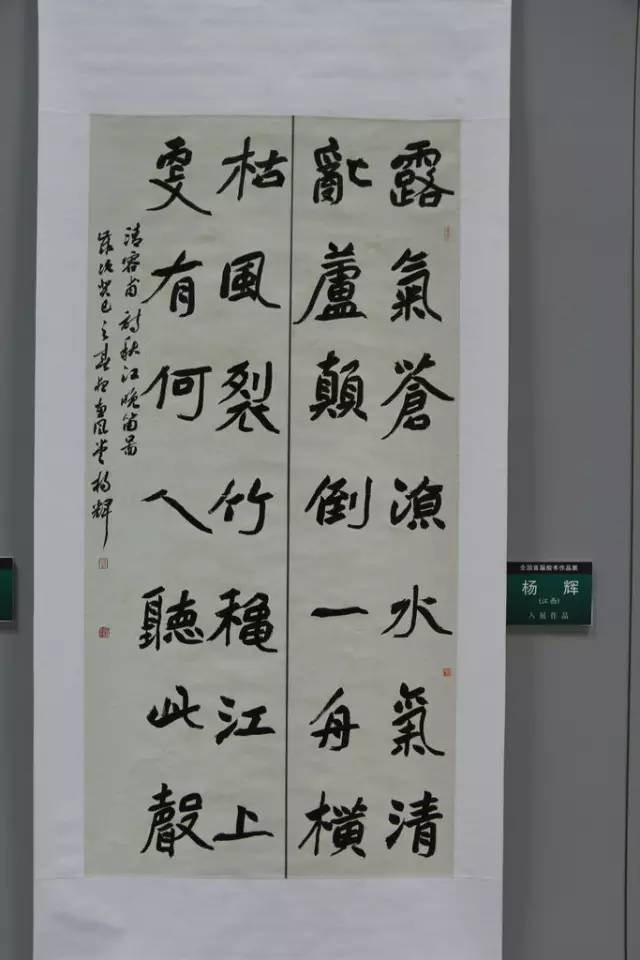 露氣蒼涼水氣清
亂蘆顛倒一舟橫
枯風裂竹穐江上
更有何人聽此聲
清容甫詩秋江晚笛圖
歲次癸巳之春於堂楊輝
全国首届楷书作品展
杨辉
(江西)
入展作品